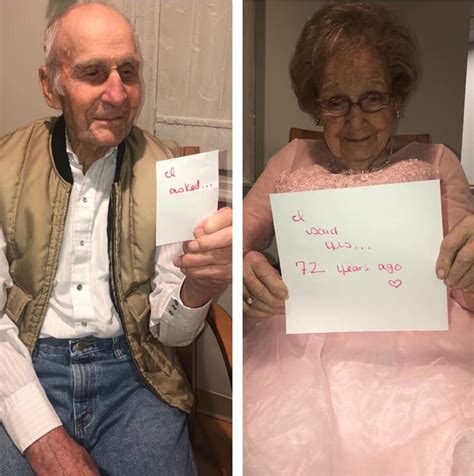 I
asked...
I
said
yes...
72 years ago
♡